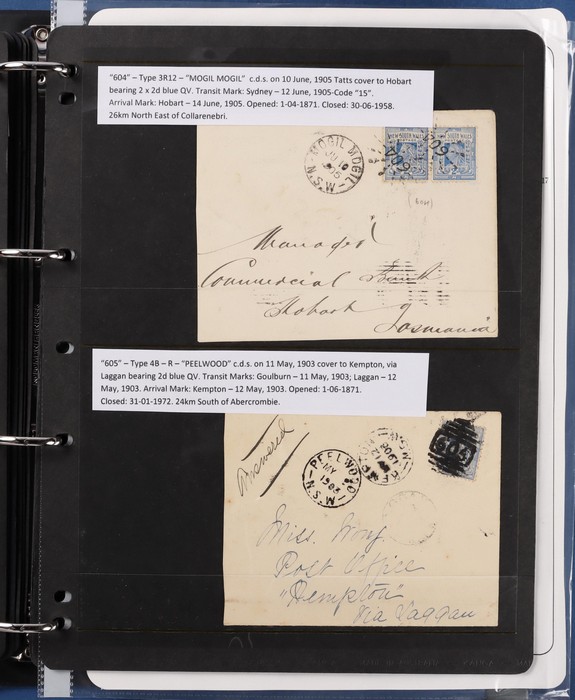 "604" – Type 3R12 – "MOGIL MOGIL" c.d.s. on 10 June, 1905 Tatts cover to Hobart
bearing 2 x 2d blue QV. Transit Mark: Sydney – 12 June, 1905-Code "15".
Arrival Mark: Hobart – 14 June, 1905. Opened: 1-04-1871. Closed: 30-06-1958.
26km North East of Collarenebri.
MOGIL MOGIL
JU 10
1905
N.S.W
NEW SOUTH WALES
604
NEW SOUTH WALES
604
Manager
Commercial Bank
Hobart
Tasmania
"605" – Type 4B – R – "PEELWOOD" c.d.s. on 11 May, 1903 cover to Kempton, via
Laggan bearing 2d blue QV. Transit Marks: Goulburn – 11 May, 1903; Laggan – 12
May, 1903. Arrival Mark: Kempton – 12 May, 1903. Opened: 1-06-1871.
Closed: 31-01-1972. 24km South of Abercrombie.
Answered
PEELWOOD
MY
1903
N.S.W
605
Miss.
Post Office
"Kempton"
Via Laggan
47